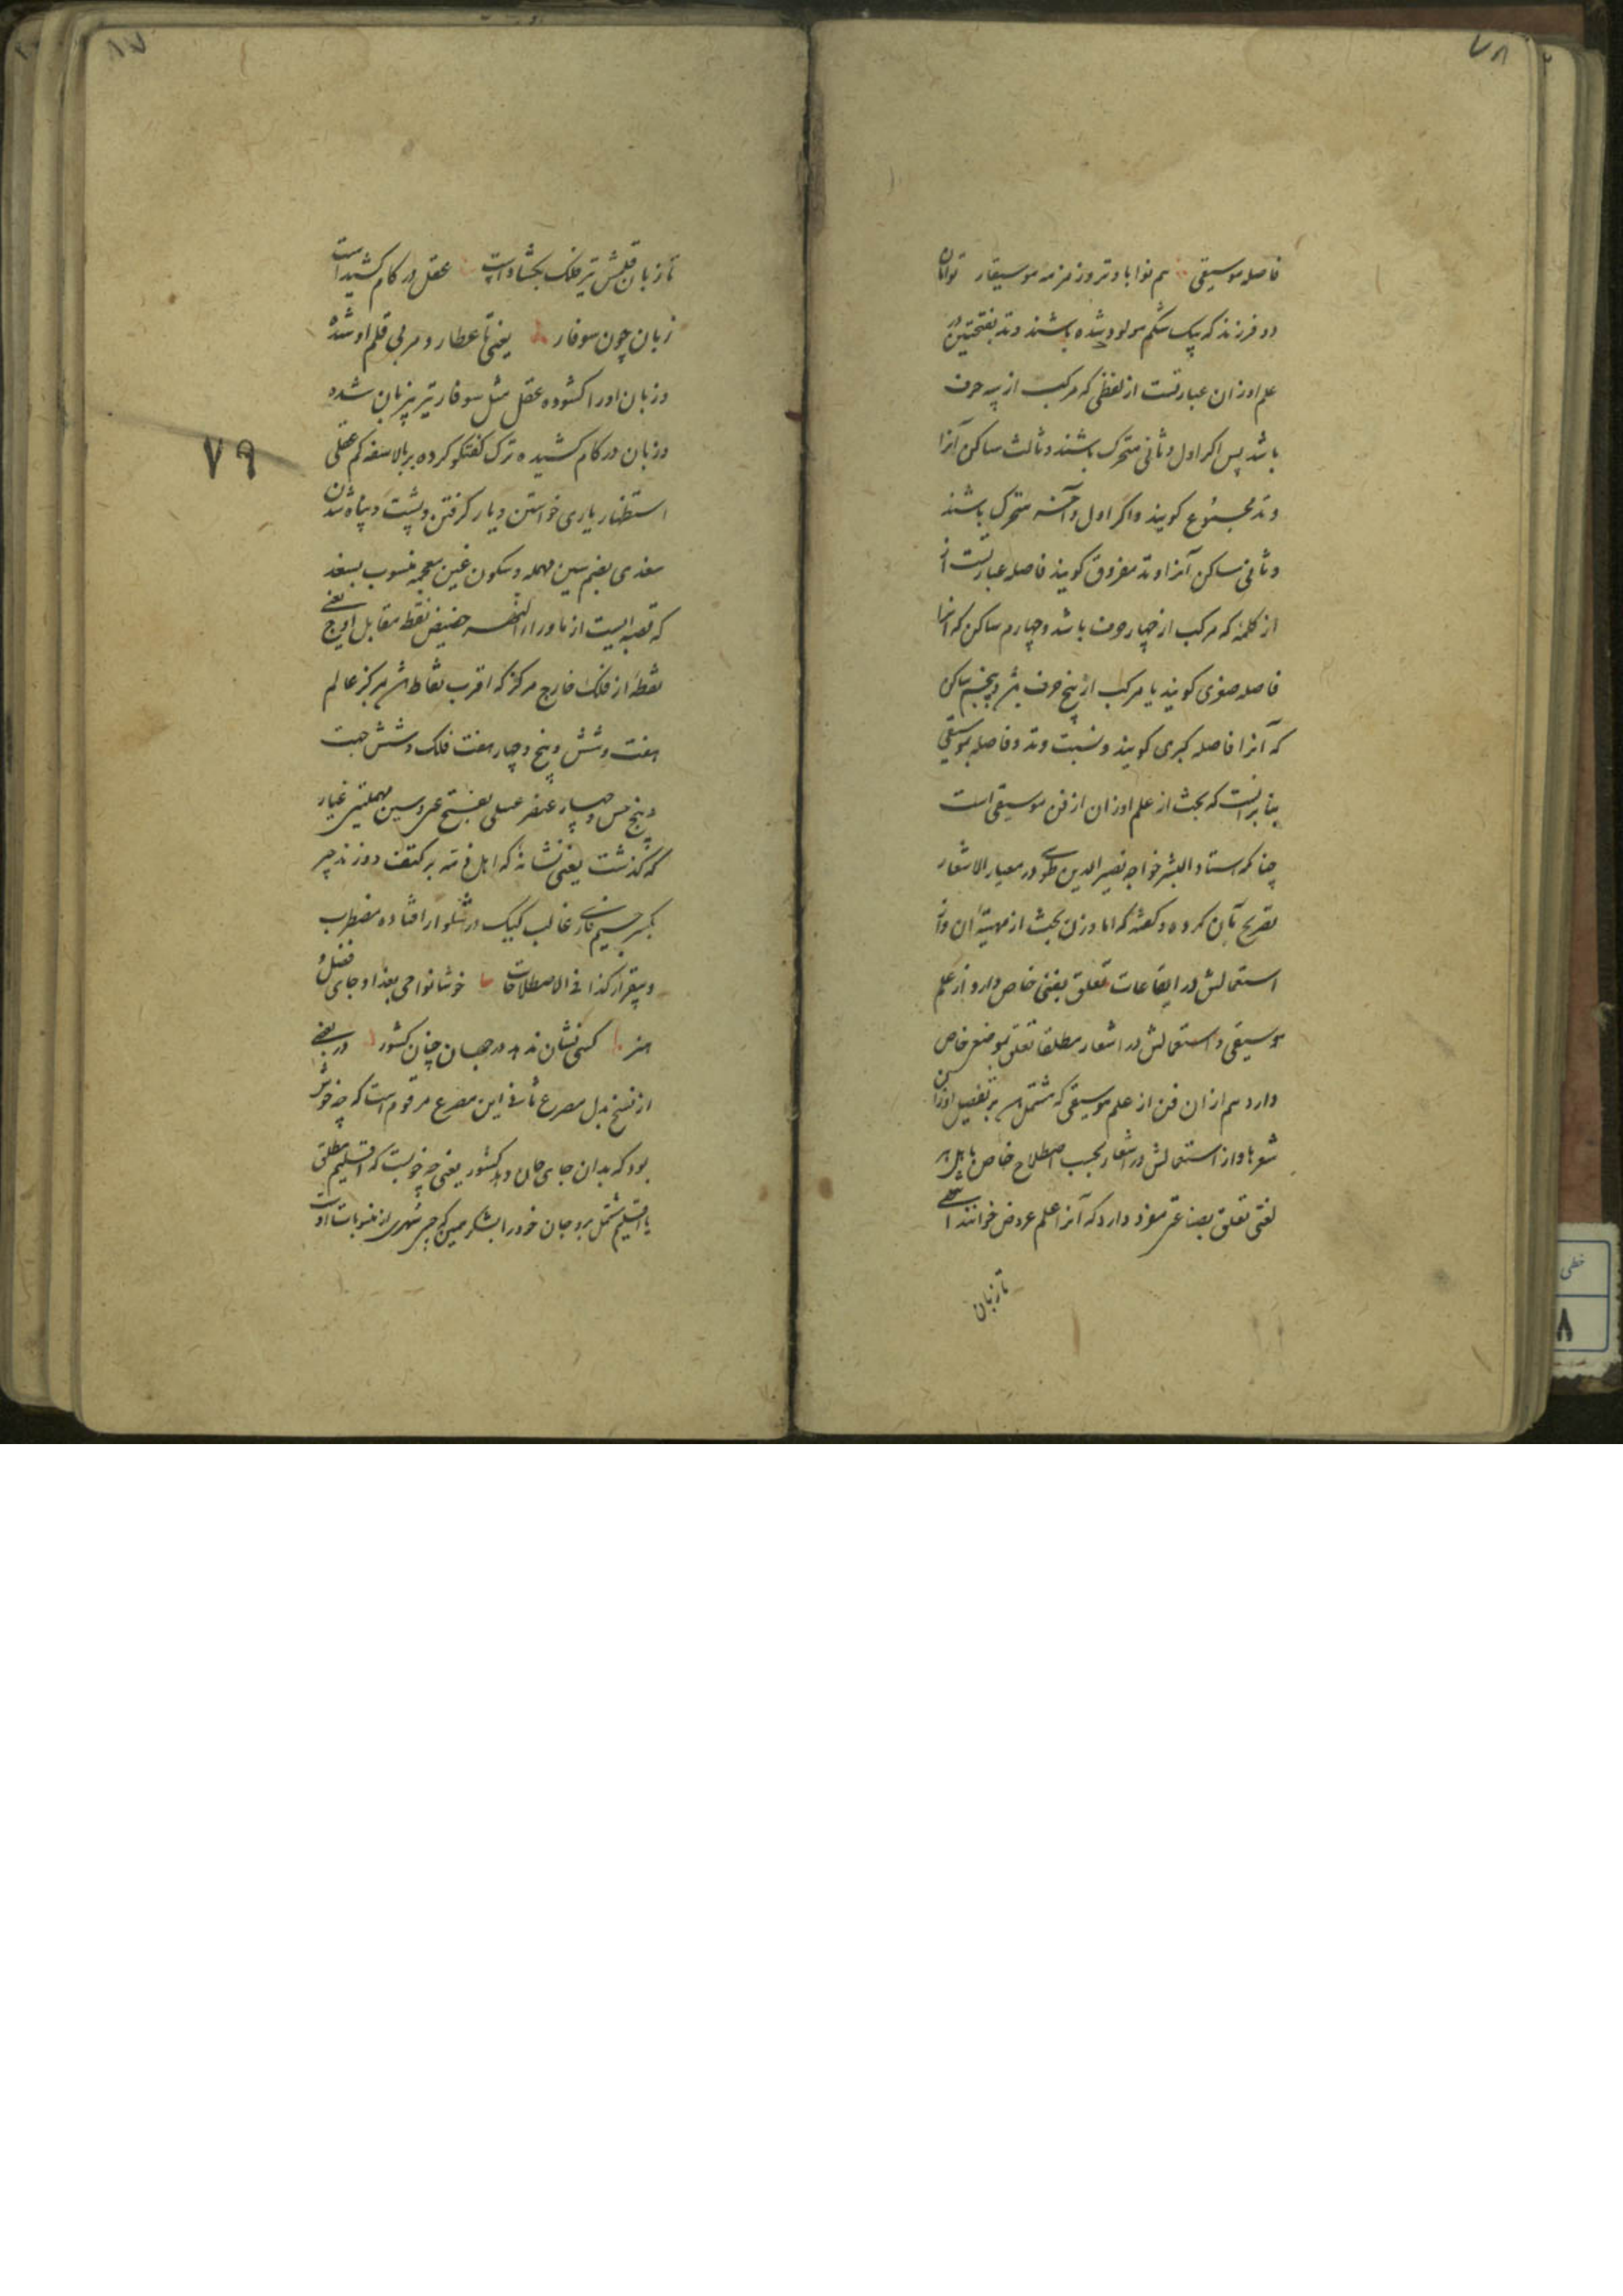 ۷۸
فاصله موسیقی هم نوا با وتر و زمزمه موسیقار توامان
دو فرزند که بیک شکم مولود شده باشند وتد بفتحتین در
علم اوزان عبارتست از لفظی که مرکب از سه حرف
باشد پس اکر اول و ثانی متحرک باشند و ثالث ساکن آنرا
وتد مجموع کویند و اکر اول و آخر متحرک باشند
و ثانی ساکن آنرا وتد مفروق کویند فاصله عبارتست از
از کلمۀ که مرکب از چهار حرف باشد و چهارم ساکن که آنرا
فاصله صغری کویند یا مرکب از پنج حرف و پنجم ساکن
که آنرا فاصله کبری کویند و نسبت وتد و فاصله بموسیقی
بنا برانست که بحث از علم اوزان از فن موسیقی است
چنانکه استاد البشر خواجه نصیر الدین طوسی در معیار الاشعار
تصریح بآن کرده و کفته که اما وزن بحث از مهیته آن و از
استعمالش در ایقاعات تعلق بفنی خاص دارد از علم
موسیقی و استعمالش در اشعار مطلقا تعلق بموضع خاص
دارد هم از ان فن از علم موسیقی که مشتمل بر تفصیل اوزان
شعرها و از استعمالش در اشعار بحسب اصطلاح خاص باهل هر
لغتی تعلق بصناعتی مفرد دارد که آنرا علم عروض خوانند انتهی
تا زبان
۷۹
تا زبان قلمش تیر فلک بکشادست عقل در کام کشیدست
زبان چون سوفار یعنی تا عطارد مربی قلم او شده
و زبان او را کشوده عقل مثل سوفار تیر بی زبان شده
و زبان در کام کشیده ترک کفتکو کرده بر بالا سفه کم عقلی
استظهار یاری خواستن و یار کرفتن و پشت و پناه شدن
سغدی بضم سین مهمله و سکون غین معجمه منسوب بسغد
که قصبه ایست از ماوراء النهر حضیض نقطه مقابل اوج یعنی
نقطۀ از فلک خارج مرکز که اقرب نقاط بمرکز عالم
هفت و شش و پنج و چهار هفت فلک و شش جهت
و پنج حس و چهار عنصر عسلی بفتح عین و سین مهملتین غیار
که کذشت یعنی نشانۀ که اهل ذمه بر کتف دوزند چیر
بکسر جیم فارسی غالب کیک در شلوار افتاده مضطرب
و بیقرار کذا فی الاصطلاحات خوشا نواحی بغداد جای فضل و
هنر کسی نشان ندهد در جهان چنان کشور در بعضی
از نسخ بدل مصرع ثانی این مصرع مرقوم است که چه خوش
بود که بدان جای جان دهد کشور یعنی چه خوبست که اقلیم مطلق
یا اقلیم مشتمل برو جان خود را بشکر همین که چنین شهری از منسوبات اوست